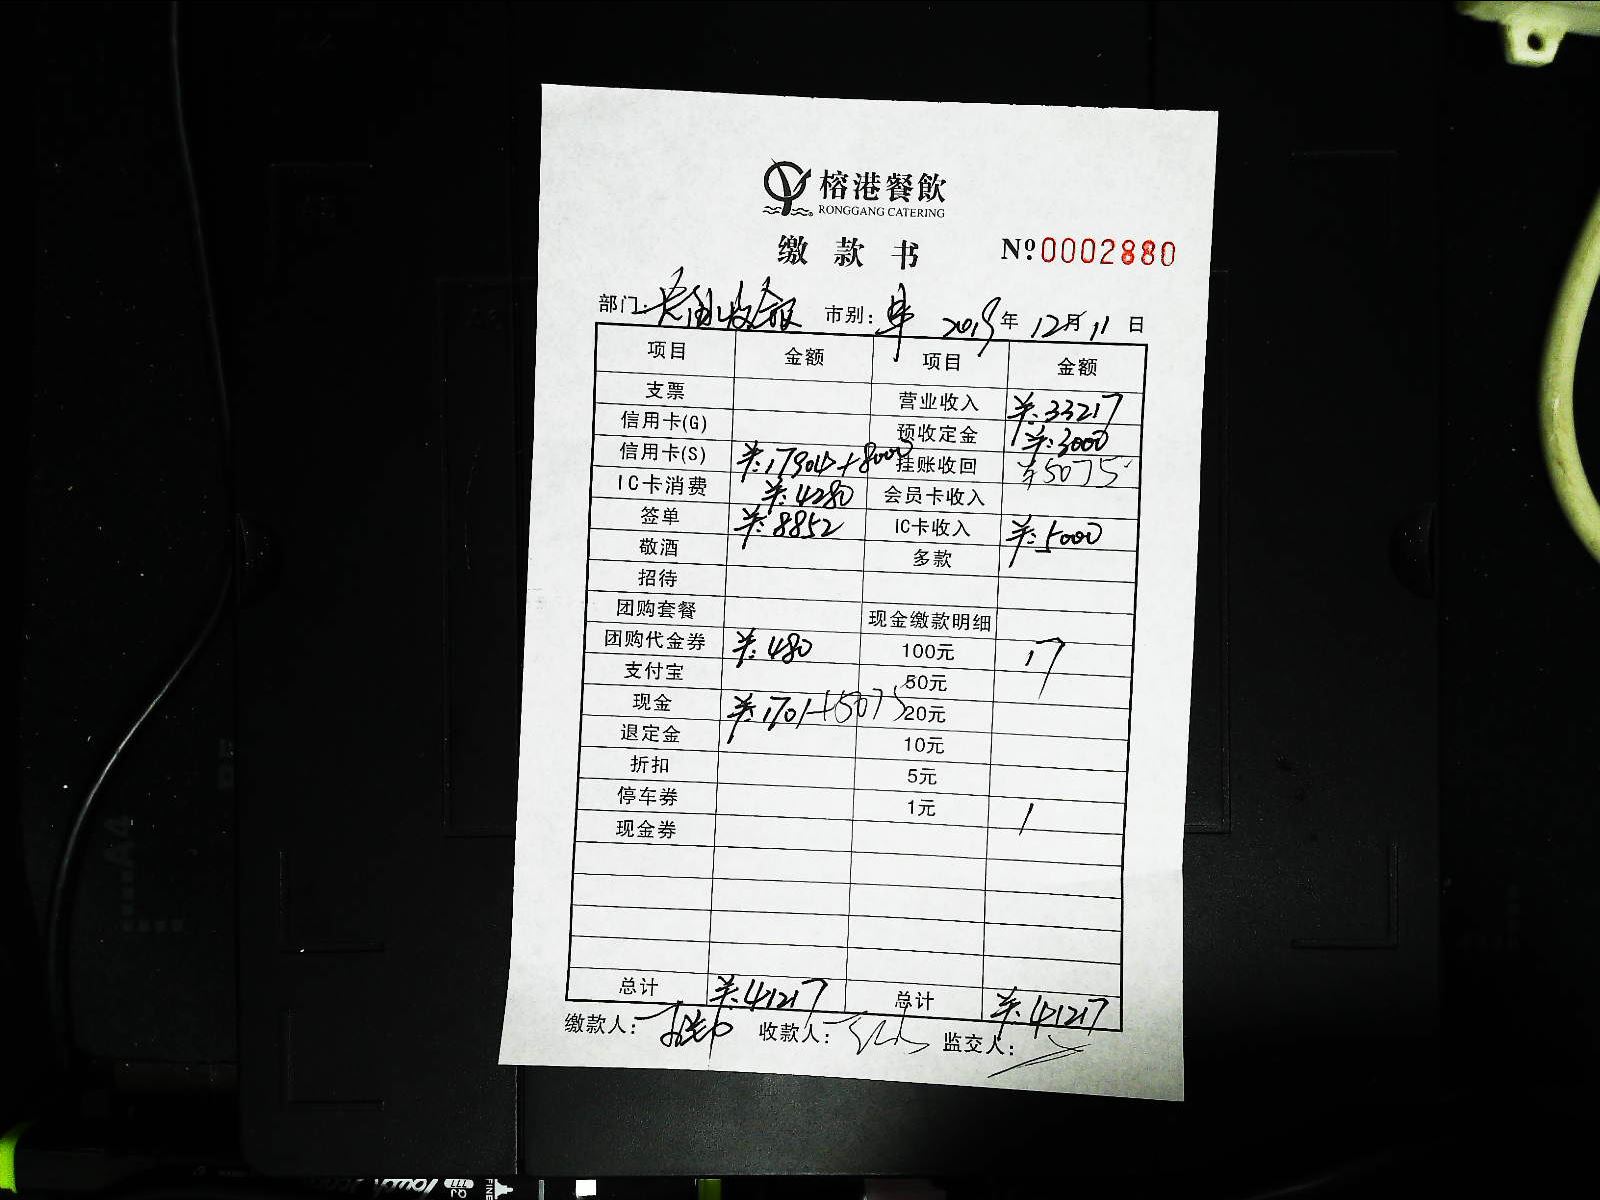 榕港餐飲
RONGGANG CATERING
缴款书 Nº 0002880
部门: 市别: 2019年 12月 11日
项目 金额 项目 金额
支票 营业收入 ¥:33217
信用卡(G) 预收定金 ¥:3000
信用卡(S) ¥:17904+8000 挂账收回 ¥5075
IC卡消费 ¥:4280 会员卡收入
签单 ¥:8852 IC卡收入 ¥:5000
敬酒 多款
招待
团购套餐 现金缴款明细
团购代金券 ¥:480 100元 17
支付宝 50元
现金 ¥:1701+5075 20元
退定金 10元
折扣 5元
停车券 1元 1
现金券
总计 ¥:41217 总计 ¥:41217
缴款人: 收款人: 监交人: